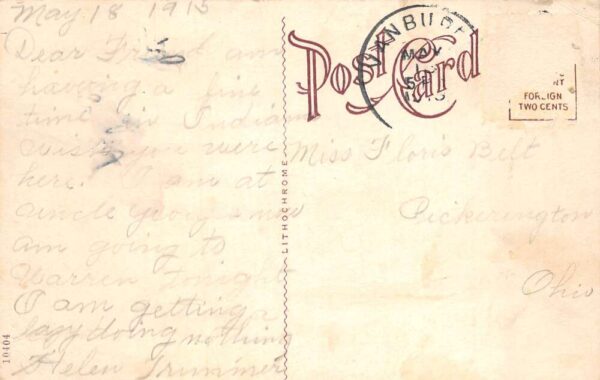 May 18 1915
Dear Friend am
having a fine
time in Indiana
wish you were
here. I am at
uncle Georg now
am going to
Warren tonight
I am getting
lazy doing nothing
Helen Trimmer
Post Card
MAY
5 P
1915
FOREIGN
TWO CENTS
Miss Floris Belt
Pickerington
Ohio
LITHOCHROME
10404